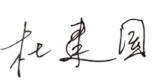 杜建国